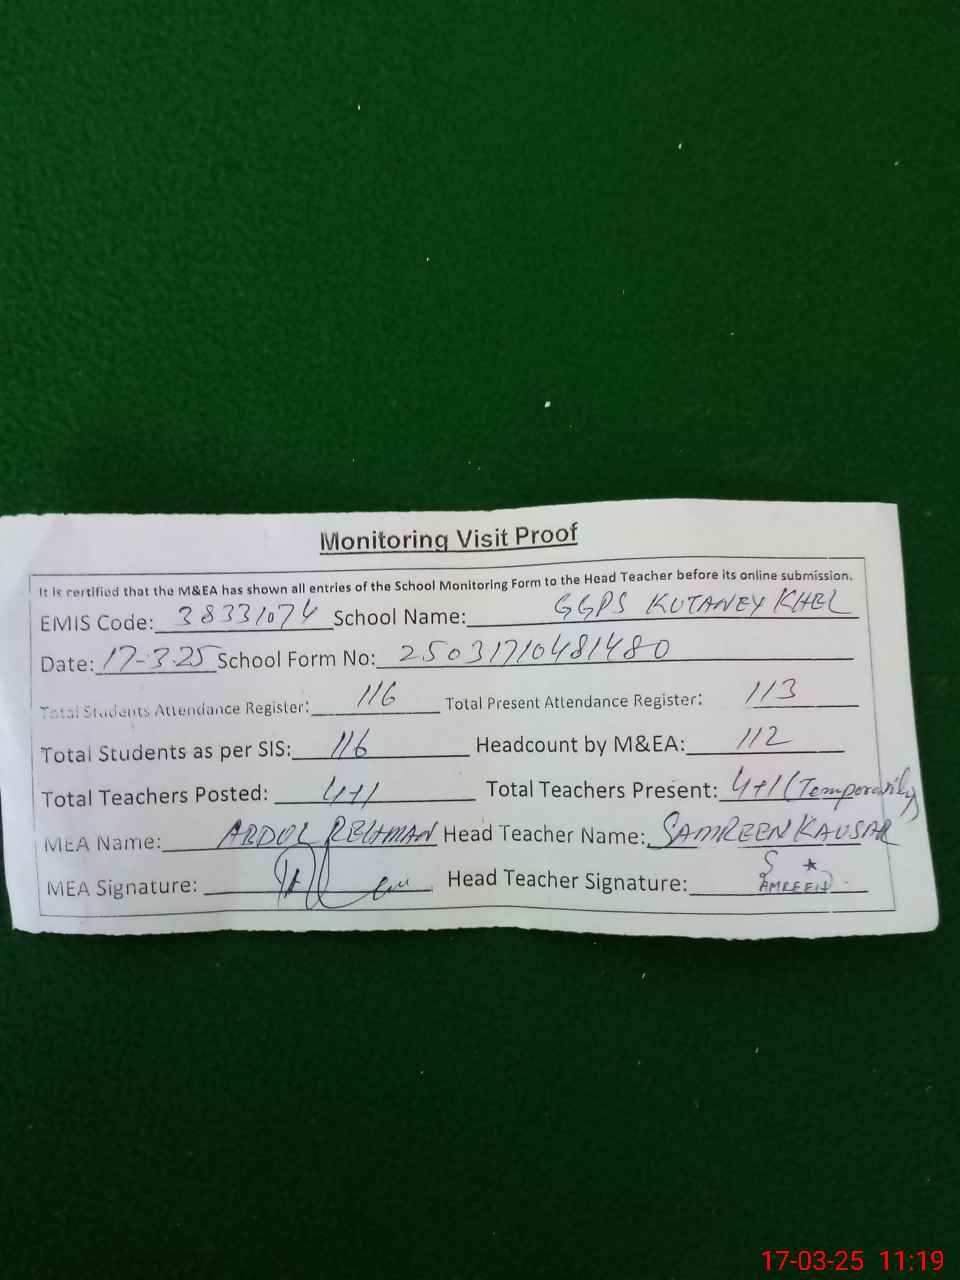 Monitoring Visit Proof
It is certified that the M&EA has shown all entries of the School Monitoring Form to the Head Teacher before its online submission.
EMIS Code: 38331074 School Name: GGPS KUTANEY KHEL
Date: 17-3-25 School Form No: 25031710481480
Total Students Attendance Register: 116 Total Present Attendance Register: 113
Total Students as per SIS: 116 Headcount by M&EA: 112
Total Teachers Posted: 4+1 Total Teachers Present: 4+1 (Temporarily)
MEA Name: ABDUL REHMAN Head Teacher Name: SAMREEN KAUSAR
MEA Signature: Head Teacher Signature: SAMREEN
17-03-25 11:19